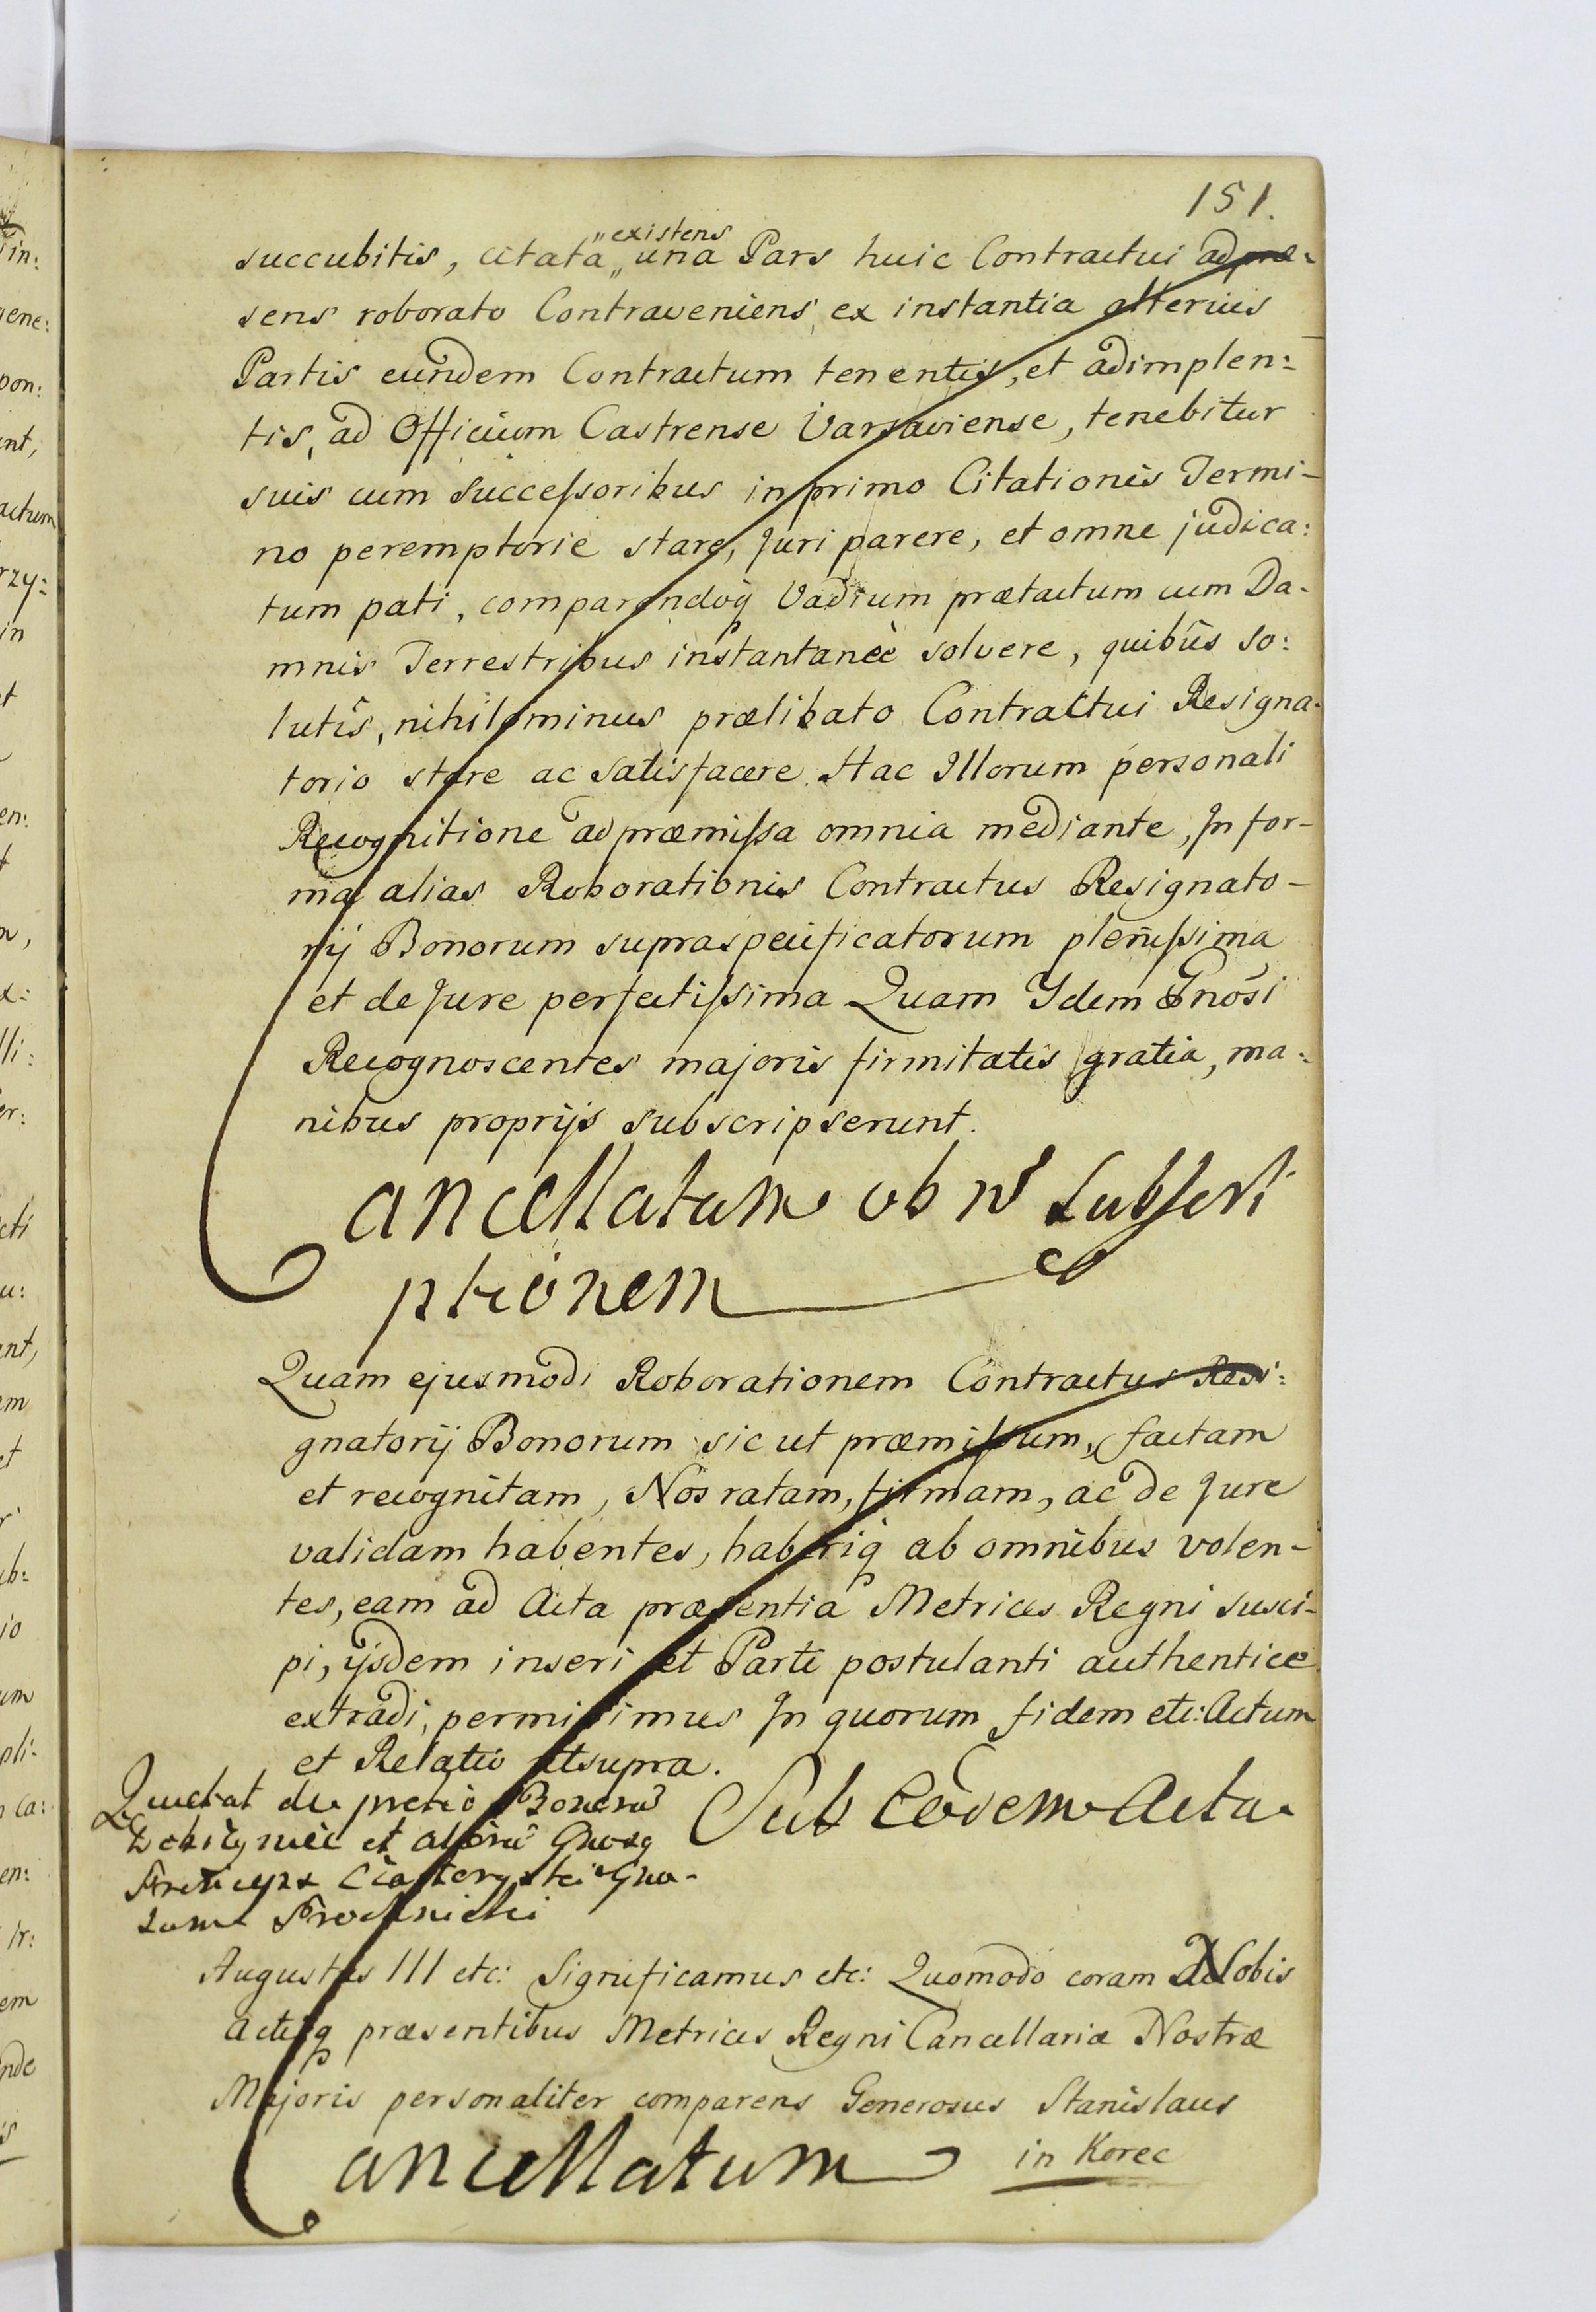 151.
succubitis, citata „existens„ una Pars huic Contractui ad præ:
sens roborato Contraveniens, ex instantia alterius
Partis eundem Contractum tenentis, et adimplen:
tis, ad Officium Castrense Varsaviense, tenebitur
suis cum Succeſsoribus in primo Citationis Termi-
no peremptorie stare, Juri parere, et omne judica:
tum pati, comparendoq̃ Vadium prætactum cum Da-
mnis Terrestribus instantaneè solvere, quibus so:
lutis, nihilominus prælibato Contractui Resigna-
torio stare ac satisfacere. Hac Illorum personali
Recognitione ad præmiſsa omnia mediante, In for-
ma alias Roborationis Contractus Resignato-
rij Bonorum supraspecificatorum pleniſsima
et de Jure perfectiſsima Quam Ydem Gnosi
Recognoscentes majoris firmitatis gratia, ma:
nibus proprijs subscripserunt.
Cancellatum ob nō Subscri
ptionem
Quam ejusmodi Roborationem Contractus Resi:
gnatorij Bonorum sic ut præmiſsum, factam
et recognitam, Nos ratam, firmam, ac de Jure
validam habentes, haberiq̃ ab omnibus volen-
tes, eam ad Acta præsentia Metrices Regni susci-
pi, ijsdem inseri et Parti postulanti authentice
extradi, permisimus In quorum fidem etc: Actum
et Relatio utsupra.
Quietat de pretio Bonorū
et aliorū Gnosq

Sub Eodem Actu
Augustus III etc: Significamus etc: Quomodo coram Nobis
Actisq̃ præsentibus Metrices Regni Cancellariæ Nostræ
Majoris personaliter comparens Generosus Stanislaus
in Korec
Cancellatum